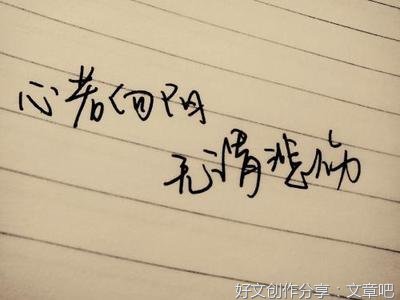 心若向阳
无谓悲伤
好文创作分享：文章吧